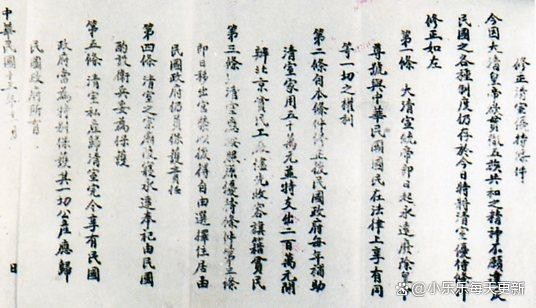 修正清室優待條件
今因大清皇帝欲貫徹五族共和之精神不願違反
民國之各種制度仍存於今日特將清室優待條件
修正如左
第一條 大清宣統帝即日起永遠廢除皇帝
尊號與中華民國國民在法律上享有同
等一切之權利
第二條自本條件修正後民國政府每年補助
清室家用五十萬元並特支出二百萬元開
辦北京貧民工廠儘先收容旗籍貧民
第三條 清室應按照原優待條件第三條
即日移出宮禁以後得自由選擇住居由
民國政府仍負保護責任
第四條 清室之宗廟陵寢永遠奉祀由民國
酌設衛兵妥為保護
第五條 清室私產歸清室完全享有民國
政府當為特別保護其一切公產應歸
民國政府所有
中華民國十三年十一月 日
@小乐乐每天更新